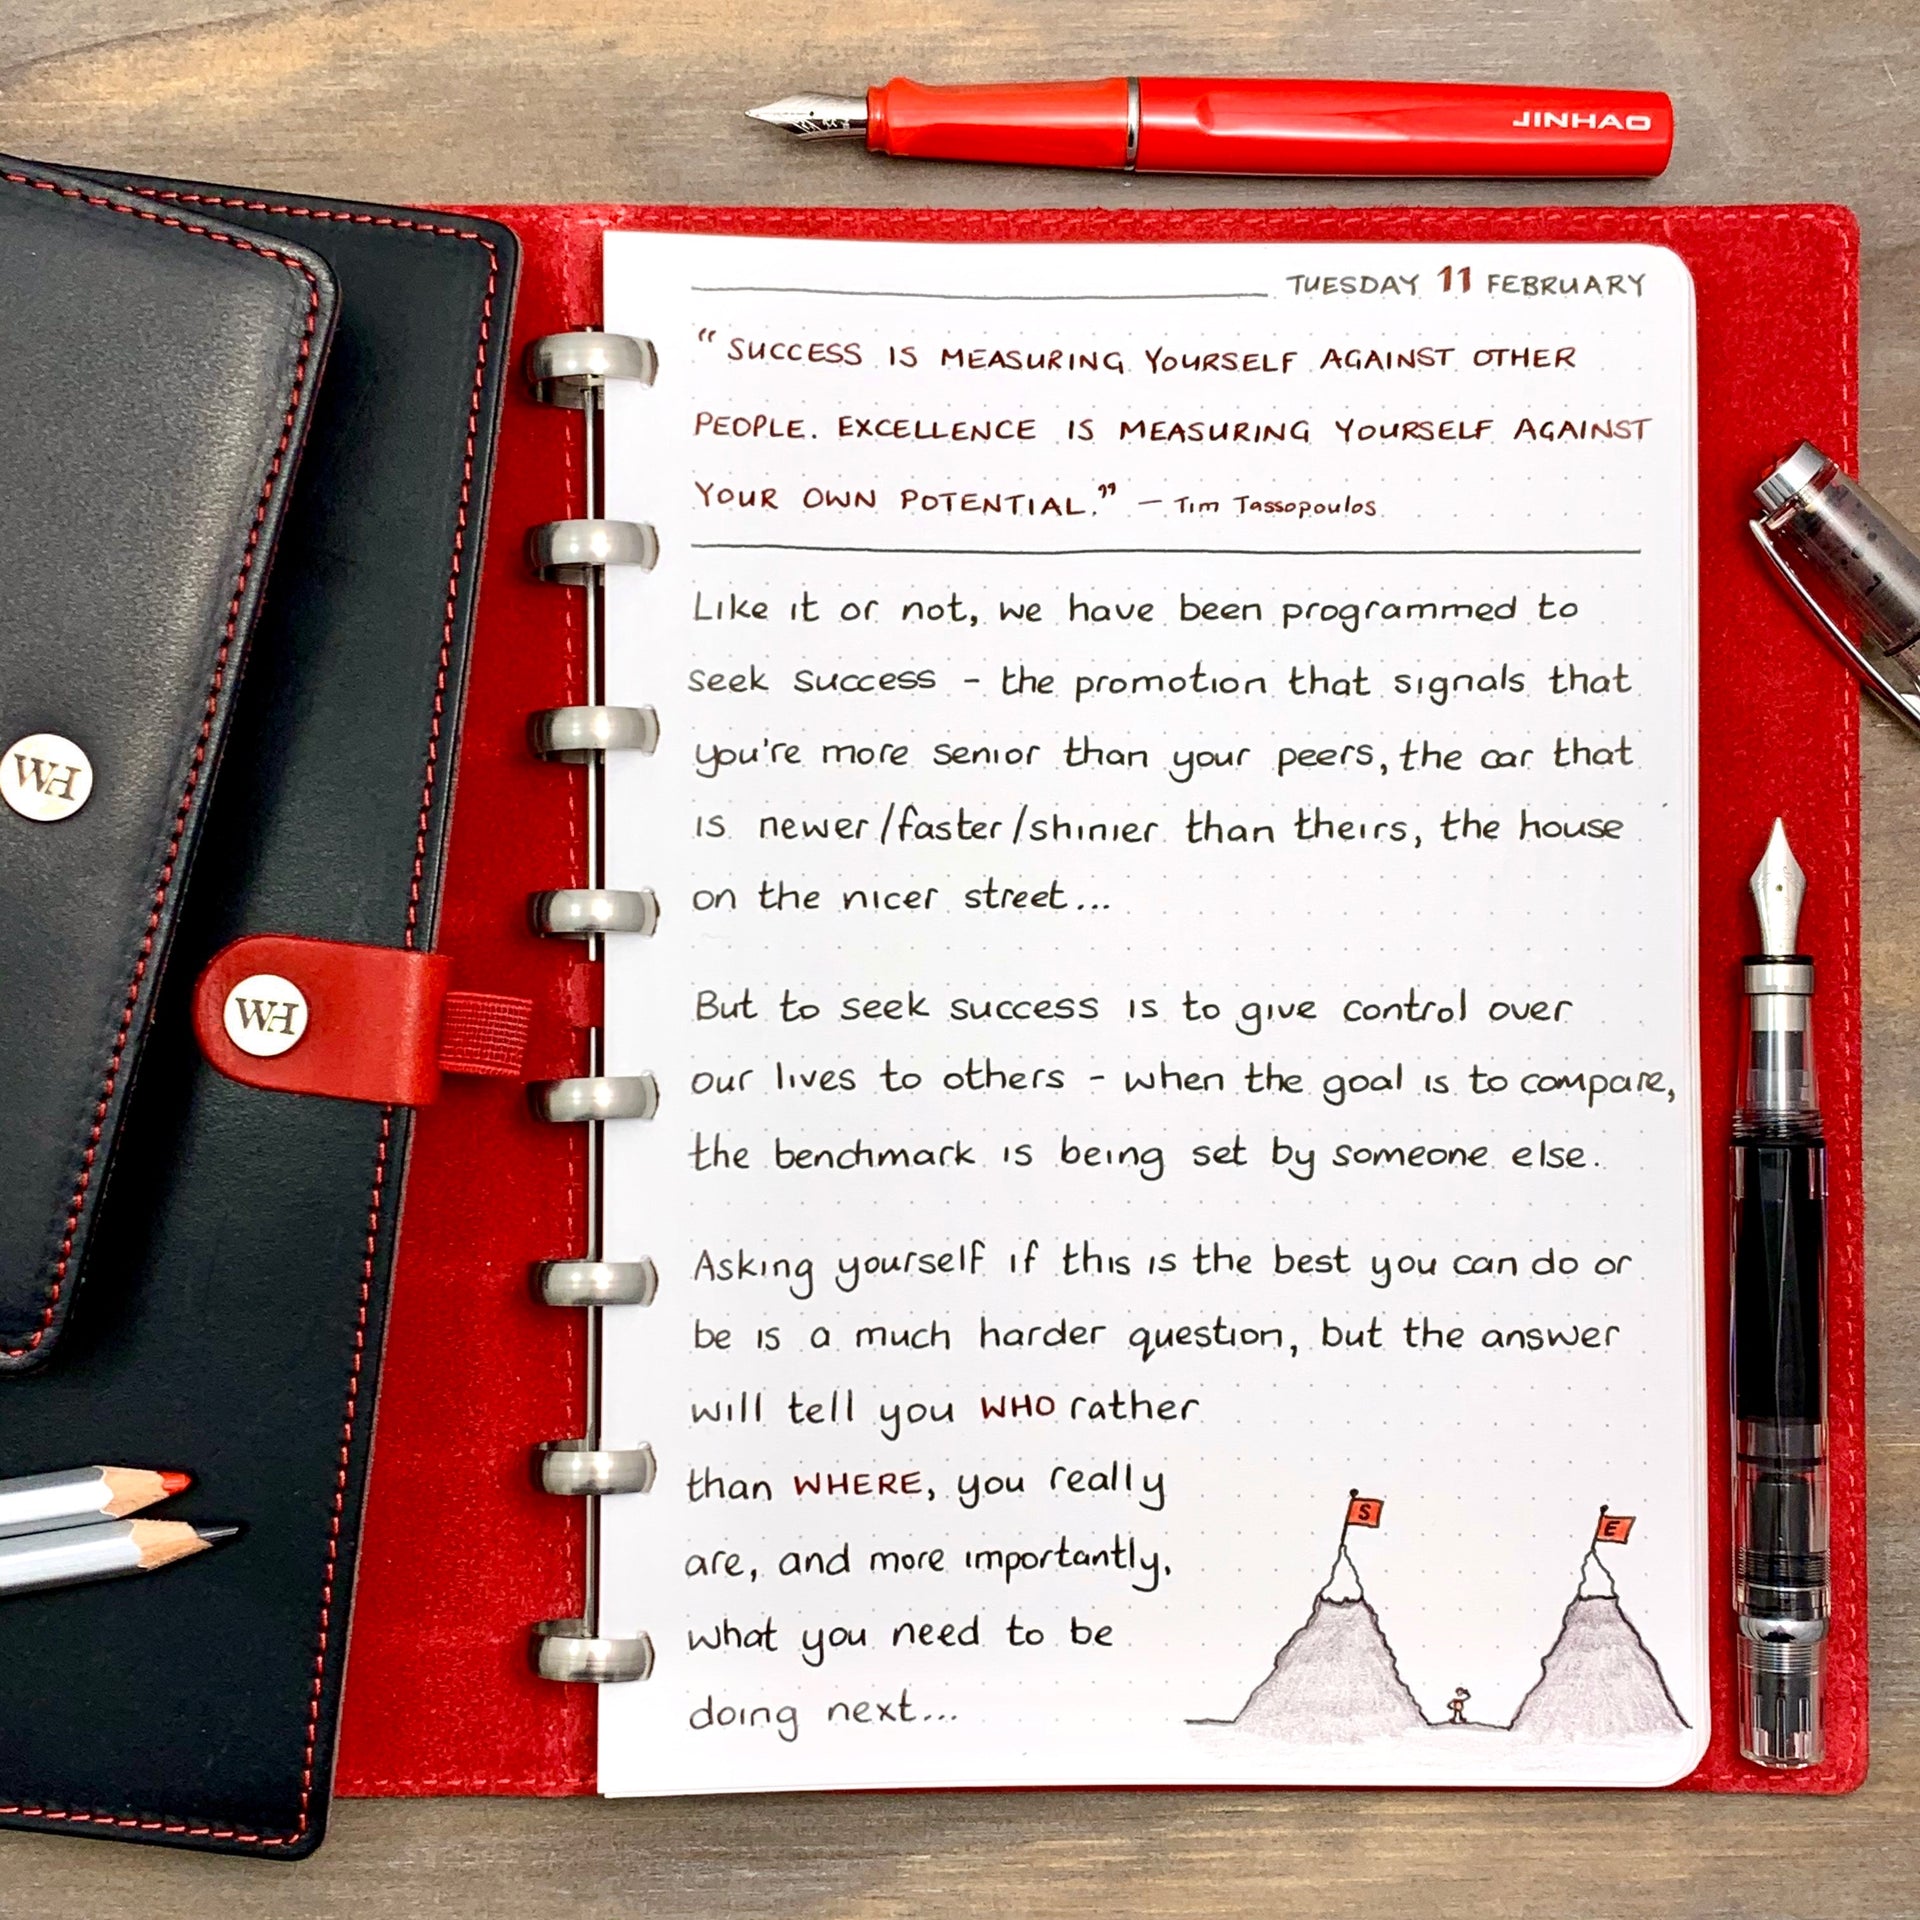 JINHAO
TUESDAY 11 FEBRUARY
“SUCCESS IS MEASURING YOURSELF AGAINST OTHER
PEOPLE. EXCELLENCE IS MEASURING YOURSELF AGAINST
YOUR OWN POTENTIAL.” – Tim Tassopoulos
Like it or not, we have been programmed to
seek success - the promotion that signals that
you're more senior than your peers, the car that
is newer/faster/shinier than theirs, the house
on the nicer street...
But to seek success is to give control over
our lives to others - when the goal is to compare,
the benchmark is being set by someone else.
Asking yourself if this is the best you can do or
be is a much harder question, but the answer
will tell you WHO rather
than WHERE, you really
are, and more importantly,
what you need to be
doing next...
S
E
WH
WH